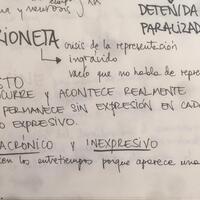 y neurosis
DETENIDA
PARALIZAD
IONETA
crisis de la representación
ingrávido
vuelo que no habla de repre
STO
CURRE Y ACONTECE REALMENTE
PERMANECE SIN EXPRESIÓN EN CADA
O EXPRESIVO.
ACRÓNICO Y INEXPRESIVO
en los entretiempos porque aparece una